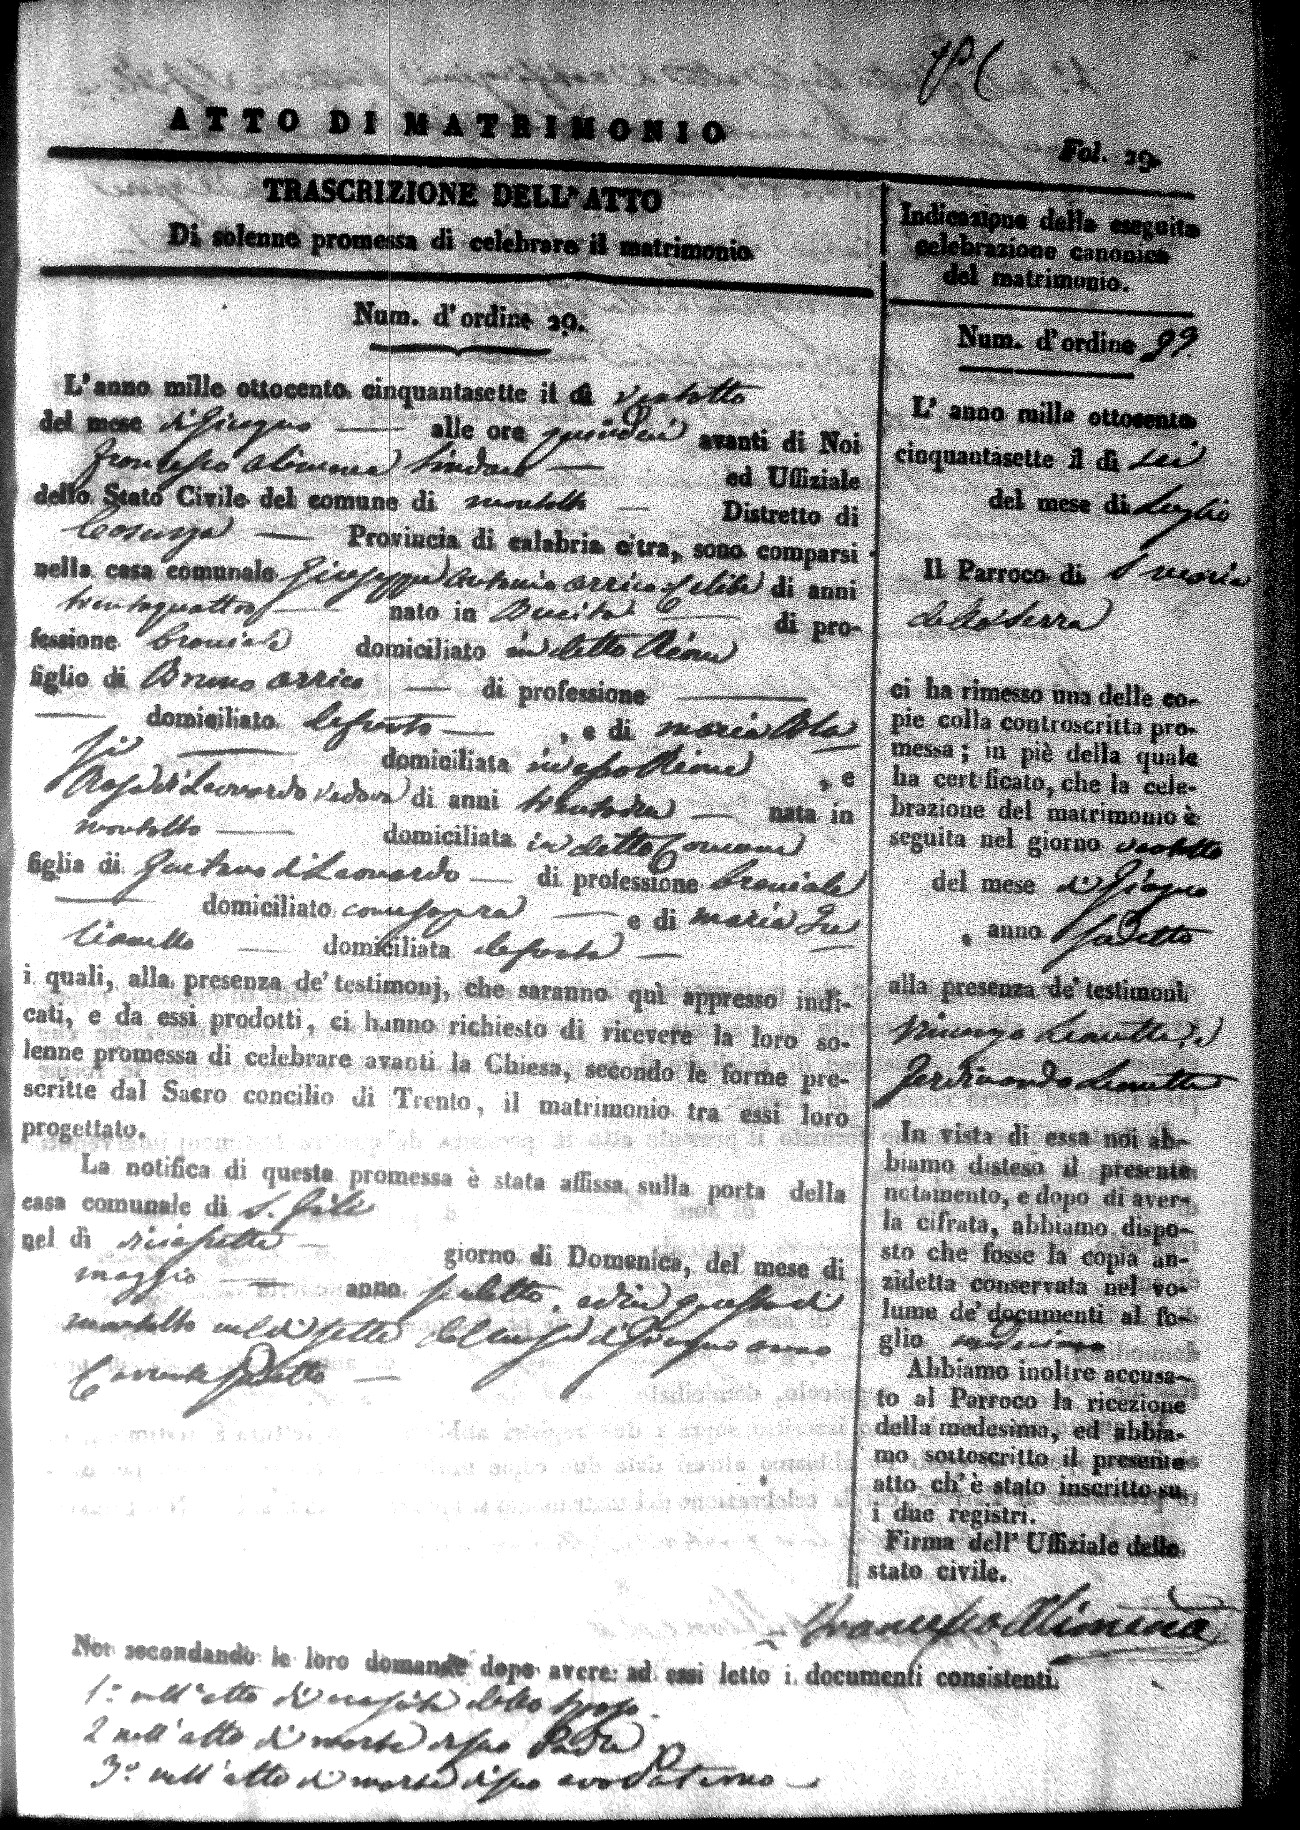 ATTO DI MATRIMONIO
Fol. 29.
TRASCRIZIONE DELL'ATTO
Di solenne promessa di celebrare il matrimonio
Num. d'ordine 29.
L'anno mille ottocento cinquantasette il dì ventotto
del mese di Giugno — alle ore quindici avanti di Noi
Francesco Alimena Sindaco — ed Uffiziale
dello Stato Civile del comune di montalto — Distretto di
Cosenza — Provincia di calabria citra, sono comparsi
nella casa comunale Giuseppe Antonio arrico di anni
trentaquattro — nato in — di pro-
fessione Bracciale domiciliato in detto Rione
figlio di Bruno arrico — di professione —
— domiciliato defunto — , e di maria
— domiciliata in esso Rione , e
Rosa di Leonardo vedova di anni — nata in
montalto — domiciliata in detto Comune
figlia di Gaetano di Leonardo — di professione Bracciale
— domiciliato come sopra — e di maria
— domiciliata defunta —
i quali, alla presenza de' testimonj, che saranno quì appresso indi-
cati, e da essi prodotti, ci hanno richiesto di ricevere la loro so-
lenne promessa di celebrare avanti la Chiesa, secondo le forme pre-
scritte dal Sacro concilio di Trento, il matrimonio tra essi loro
progettato.
La notifica di questa promessa è stata affissa sulla porta della
casa comunale di S. Fili
nel dì diciassette — giorno di Domenica, del mese di
maggio — anno sudetto, ed in questo di
montalto nel dì sette del mese di Giugno anno
Corrente sudetto —
Noi secondando le loro domande dopo avere ad essi letto i documenti consistenti
1.º nell'atto di nascita dello sposo.
2 nell'atto di morte di suo Padre
3.º nell'atto di morte di suo avo Paterno —
Indicazione della eseguita
celebrazione canonica
del matrimonio.
Num. d'ordine 29.
L' anno mille ottocento
cinquantasette il dì sei
del mese di Luglio
Il Parroco di S maria
della Serra
ci ha rimesso una delle co-
pie colla controscritta pro-
messa; in piè della quale
ha certificato, che la cele-
brazione del matrimonio è
seguita nel giorno ventotto
del mese di Giugno
, anno sudetto
alla presenza de' testimonî
Vincenzo
Ferdinando
In vista di essa noi ab-
biamo disteso il presente
notamento, e dopo di aver-
la cifrata, abbiamo dispo-
sto che fosse la copia an-
zidetta conservata nel vo-
lume de' documenti al fo-
glio
Abbiamo inoltre accusa-
to al Parroco la ricezione
della medesima, ed abbia-
mo sottoscritto il presente
atto ch'è stato inscritto su
i due registri.
Firma dell' Uffiziale dello
stato civile.
Francesco Alimena